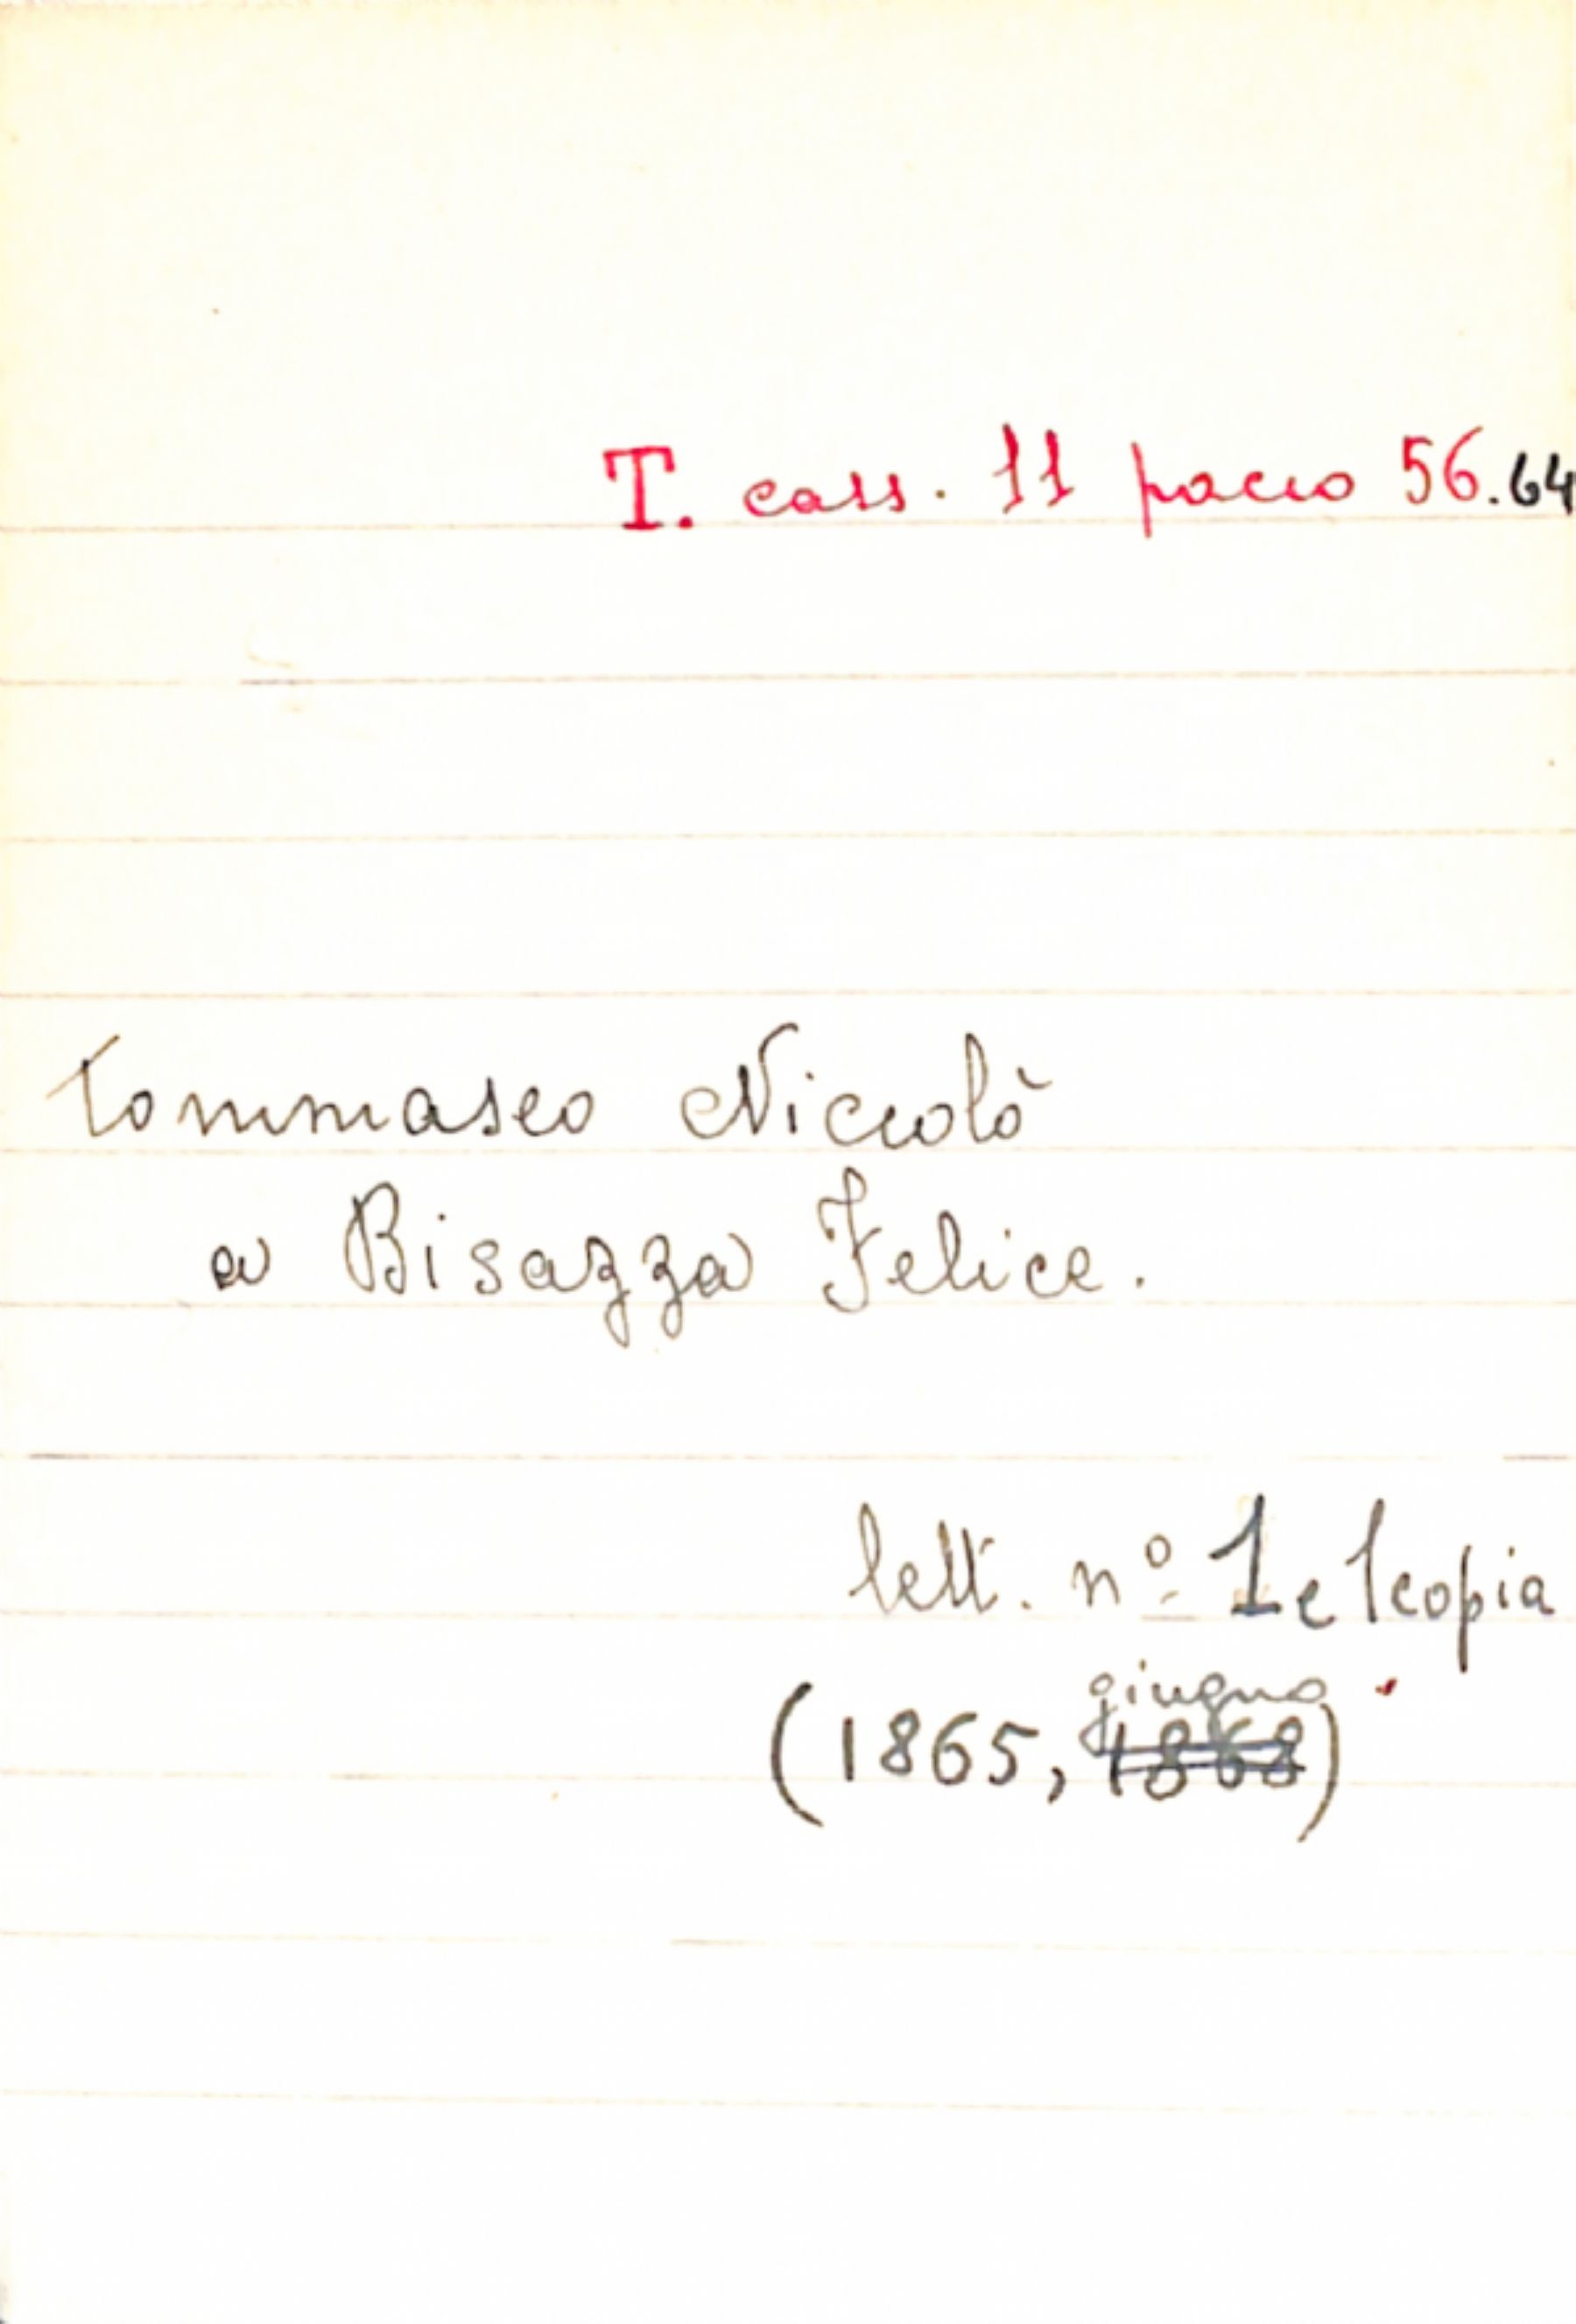 T. cass. 11 pacco 56.64
Tommaseo Niccolò
a Bisazza Felice.
lett. nº 1 e 1 copia
giugno
(1865, 1868)